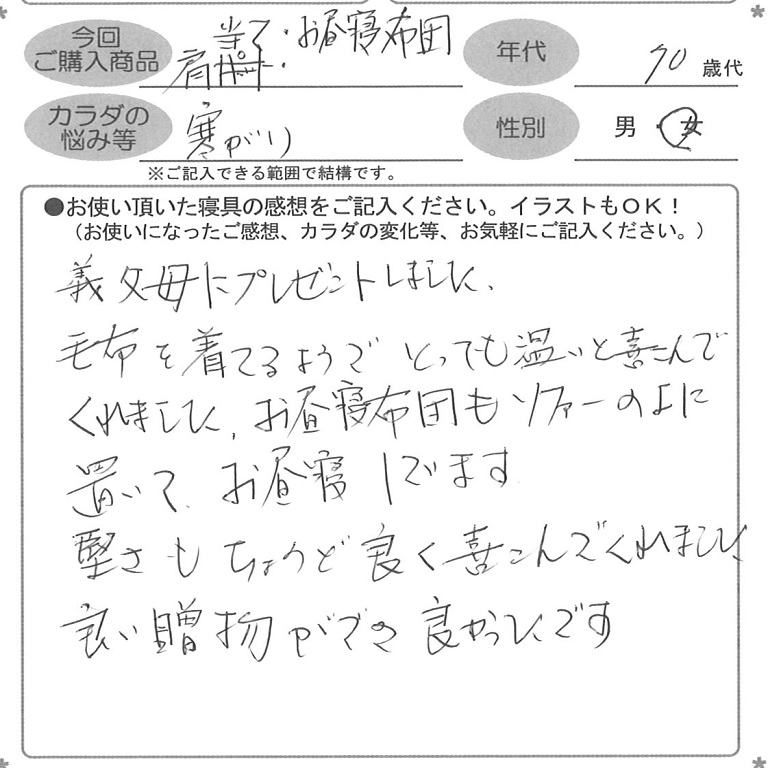 今回
ご購入商品
肩当て・お昼寝布団
年代
70歳代
カラダの
悩み等
寒がり
性別
男・女
※ご記入できる範囲で結構です。
●お使い頂いた寝具の感想をご記入ください。イラストもOK！
（お使いになったご感想、カラダの変化等、お気軽にご記入ください。）
義父母にプレゼントしました、
毛布を着てるようで とっても温いと喜こんで
くれました、お昼寝布団もソファーのよに
置いて、お昼寝してます
堅さもちょうど良く喜こんでくれました
良い贈物ができ良かったです